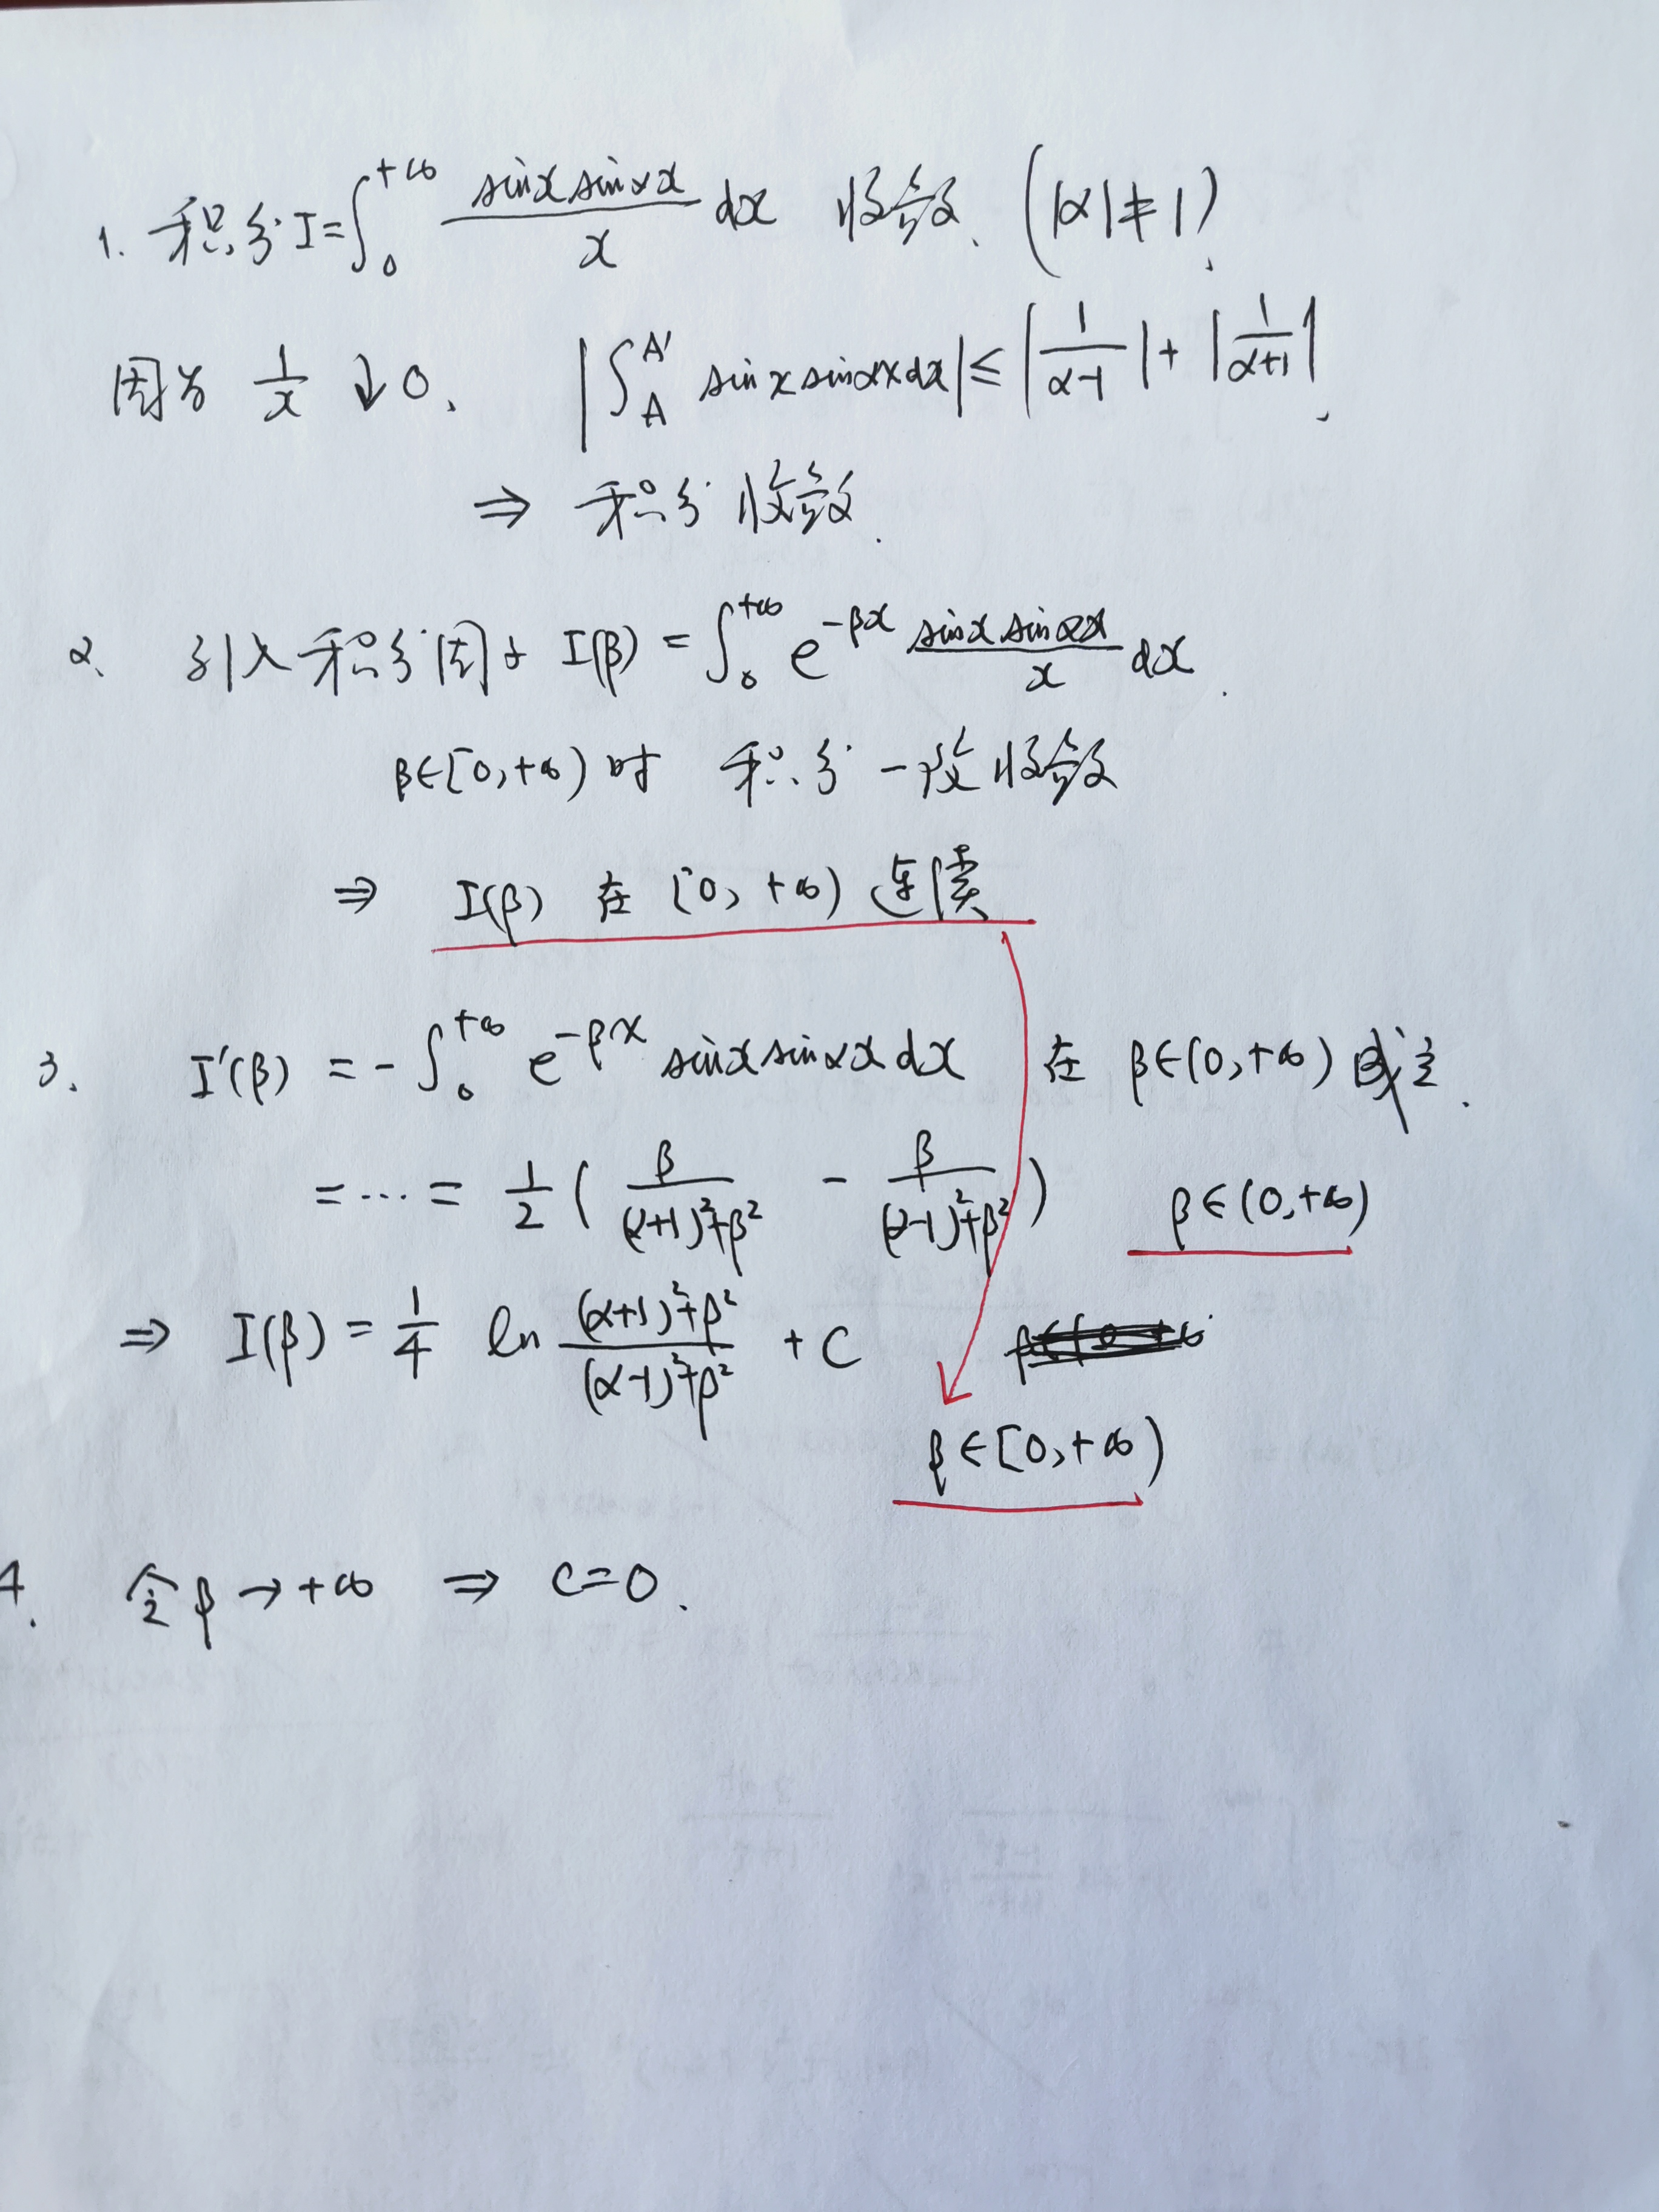 1. 积分 I=∫₀^{+∞} \frac{sinx sinαx}{x} dx 收敛. (|α|≠1).
因为 \frac{1}{x} ↓0. |∫_A^{A'} sinx sinαx dx| ≤ |\frac{1}{α-1}| + |\frac{1}{α+1}|.
⇒ 积分收敛.
2. 引入积分因子 I(β) = ∫₀^{+∞} e^{-βx} \frac{sinx sinαx}{x} dx.
β∈[0,+∞) 时 积分一致收敛
⇒ I(β) 在 [0,+∞) 连续
3. I'(β) = -∫₀^{+∞} e^{-βx} sinx sinαx dx 在 β∈(0,+∞) 成立.
=⋯= \frac{1}{2} ( \frac{β}{(α+1)²+β²} - \frac{β}{(α-1)²+β²} ) β∈(0,+∞)
⇒ I(β) = \frac{1}{4} ln \frac{(α+1)²+β²}{(α-1)²+β²} + C
β∈[0,+∞)
4. 令β→+∞ ⇒ C=0.